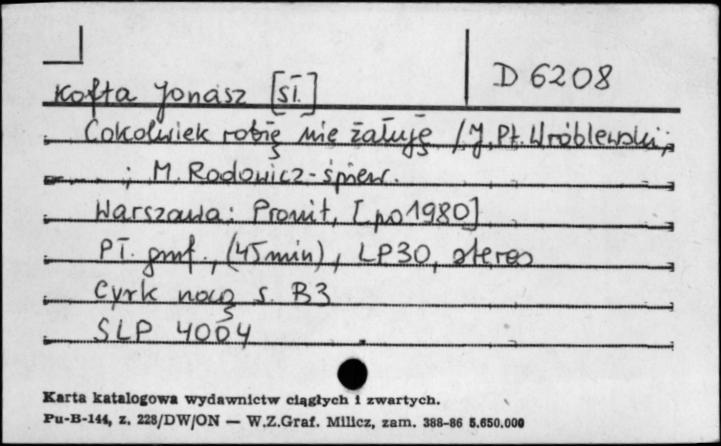 D 6208
Kofta Jonasz [sł.]
Cokolwiek robię nie żałuję / J. Pt. Wróblewski,
; M. Rodowicz - śpiew.
Warszawa : Pronit, [po 1980]
Pł. gmf., (45 min), LP30, stereo
Cyrk nocą s. B3
SLP 4004
Karta katalogowa wydawnictw ciągłych i zwartych.
Pu-B-144, z. 228/DW/ON — W.Z.Graf. Milicz, zam. 388-86 5.650.000